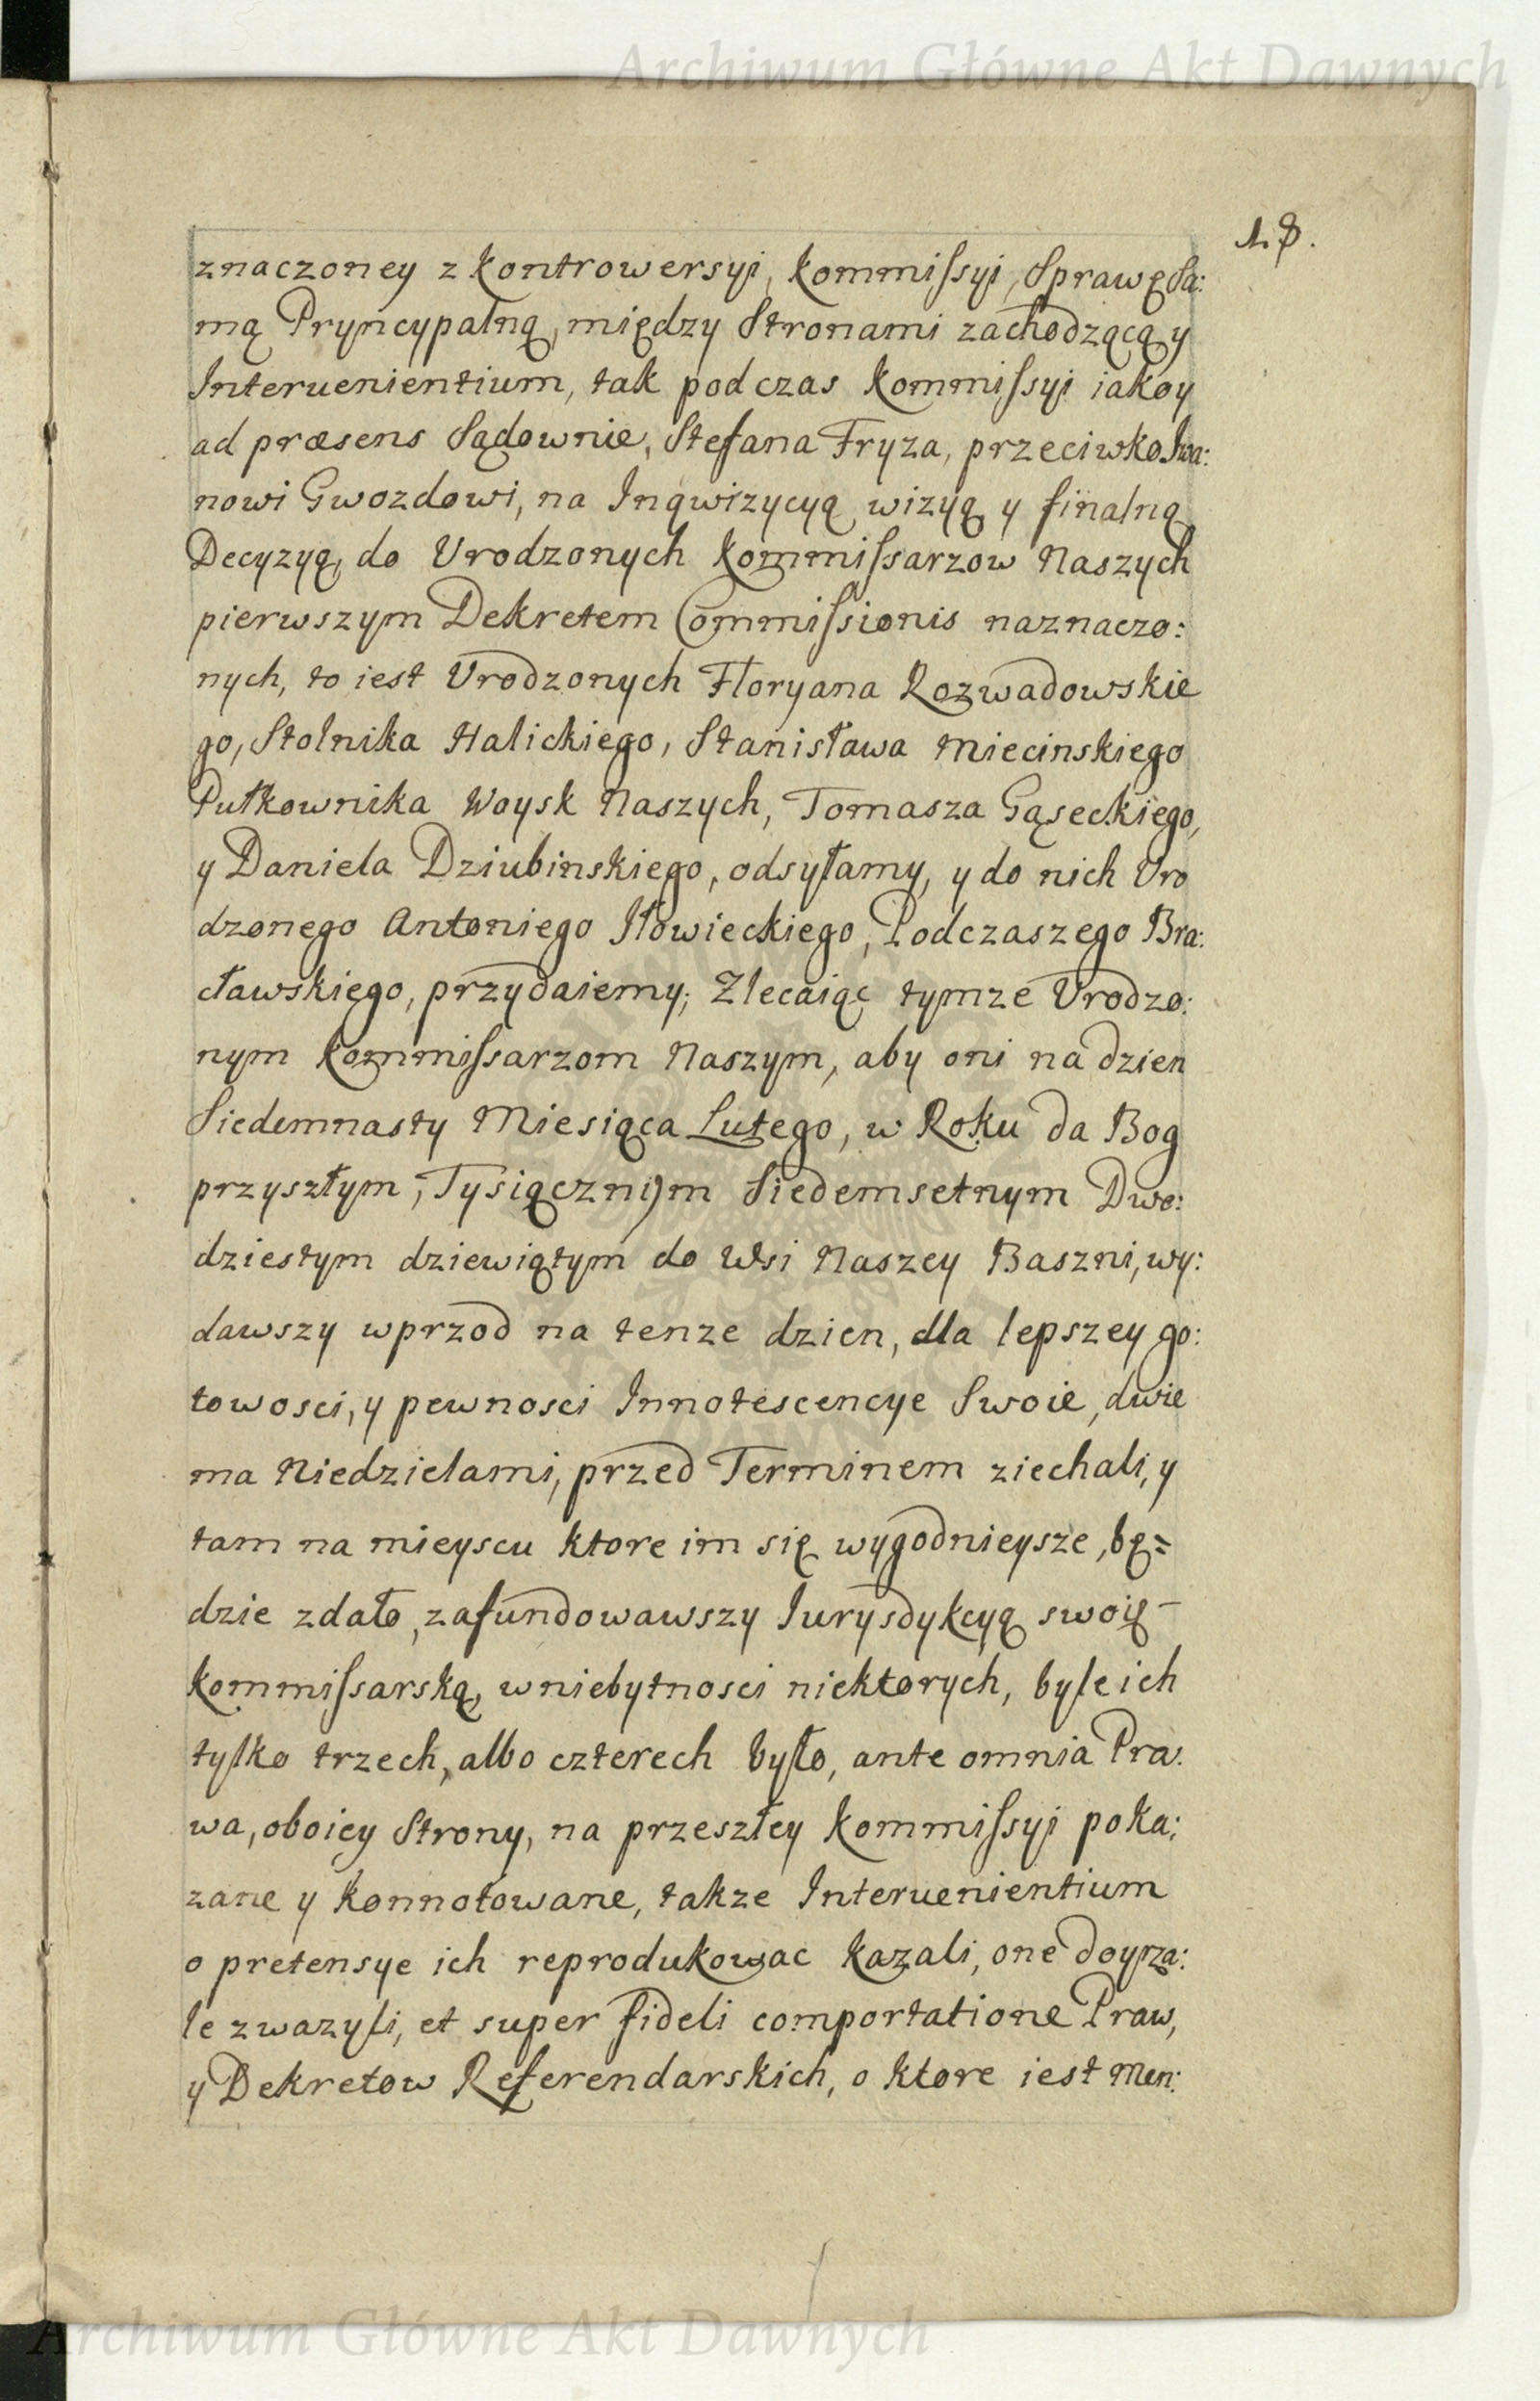 Archiwum Główne Akt Dawnych
18.
znaczoney z kontrowersyi, kommissyi, Sprawę Sa:
mą Pryncypalną, między Stronami zachodzącą y
Interuenientium, tak podczas kommissyi iako y
ad præsens Sądownie, Stefana Fryza, przeciwko Iwa:
nowi Gwozdowi, na Inqwizycyą wizyą y finalną
Decyzyą, do Vrodzonych kommissarzow Naszych
pierwszym Dekretem Commissionis naznaczo:
nych, to iest Vrodzonych Floryana Rozwadowskie
go, Stolnika Halickiego, Stanisława Miecinskiego
Pułkownika Woysk Naszych, Tomasza Gąseckiego,
y Daniela Dziubinskiego, odsyłamy, y do nich Vro
dzonego Antoniego Iłowieckiego, Podczaszego Bra:
cławskiego, przydaiemy; Zlecaiąc tymze Vrodzo:
nym kommissarzom Naszym, aby oni na dzien
Siedemnasty Miesiąca Lutego, w Roku da Bog
przyszłym, Tysiącznym Siedemsetnym Dwo:
dziestym dziewiątym do Wsi Naszey Baszni, wy:
dawszy wprzod na tenze dzien, dla lepszey go:
towosci, y pewnosci Innotescencye Swoie, dwie
ma Niedzielami, przed Terminem ziechali, y
tam na mieyscu ktore im się wygodnieysze, bę=
dzie zdało, zafundowawszy Iurysdykcyą swoię -
kommissarską, w niebytnosci niektorych, byle ich
tylko trzech, albo czterech było, ante omnia Pra:
wa, oboiey Strony, na przeszłey kommissyi poka:
zane y konnotowane, takze Interuenientium
o pretensye ich reprodukowac kazali, one doyrza:
le zwazyli, et super fideli comportatione Praw,
y Dekretow Referendarskich, o ktore iest Men:
Archiwum Główne Akt Dawnych